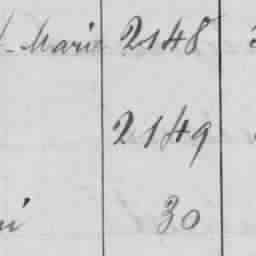 Marie 2148
2149
30